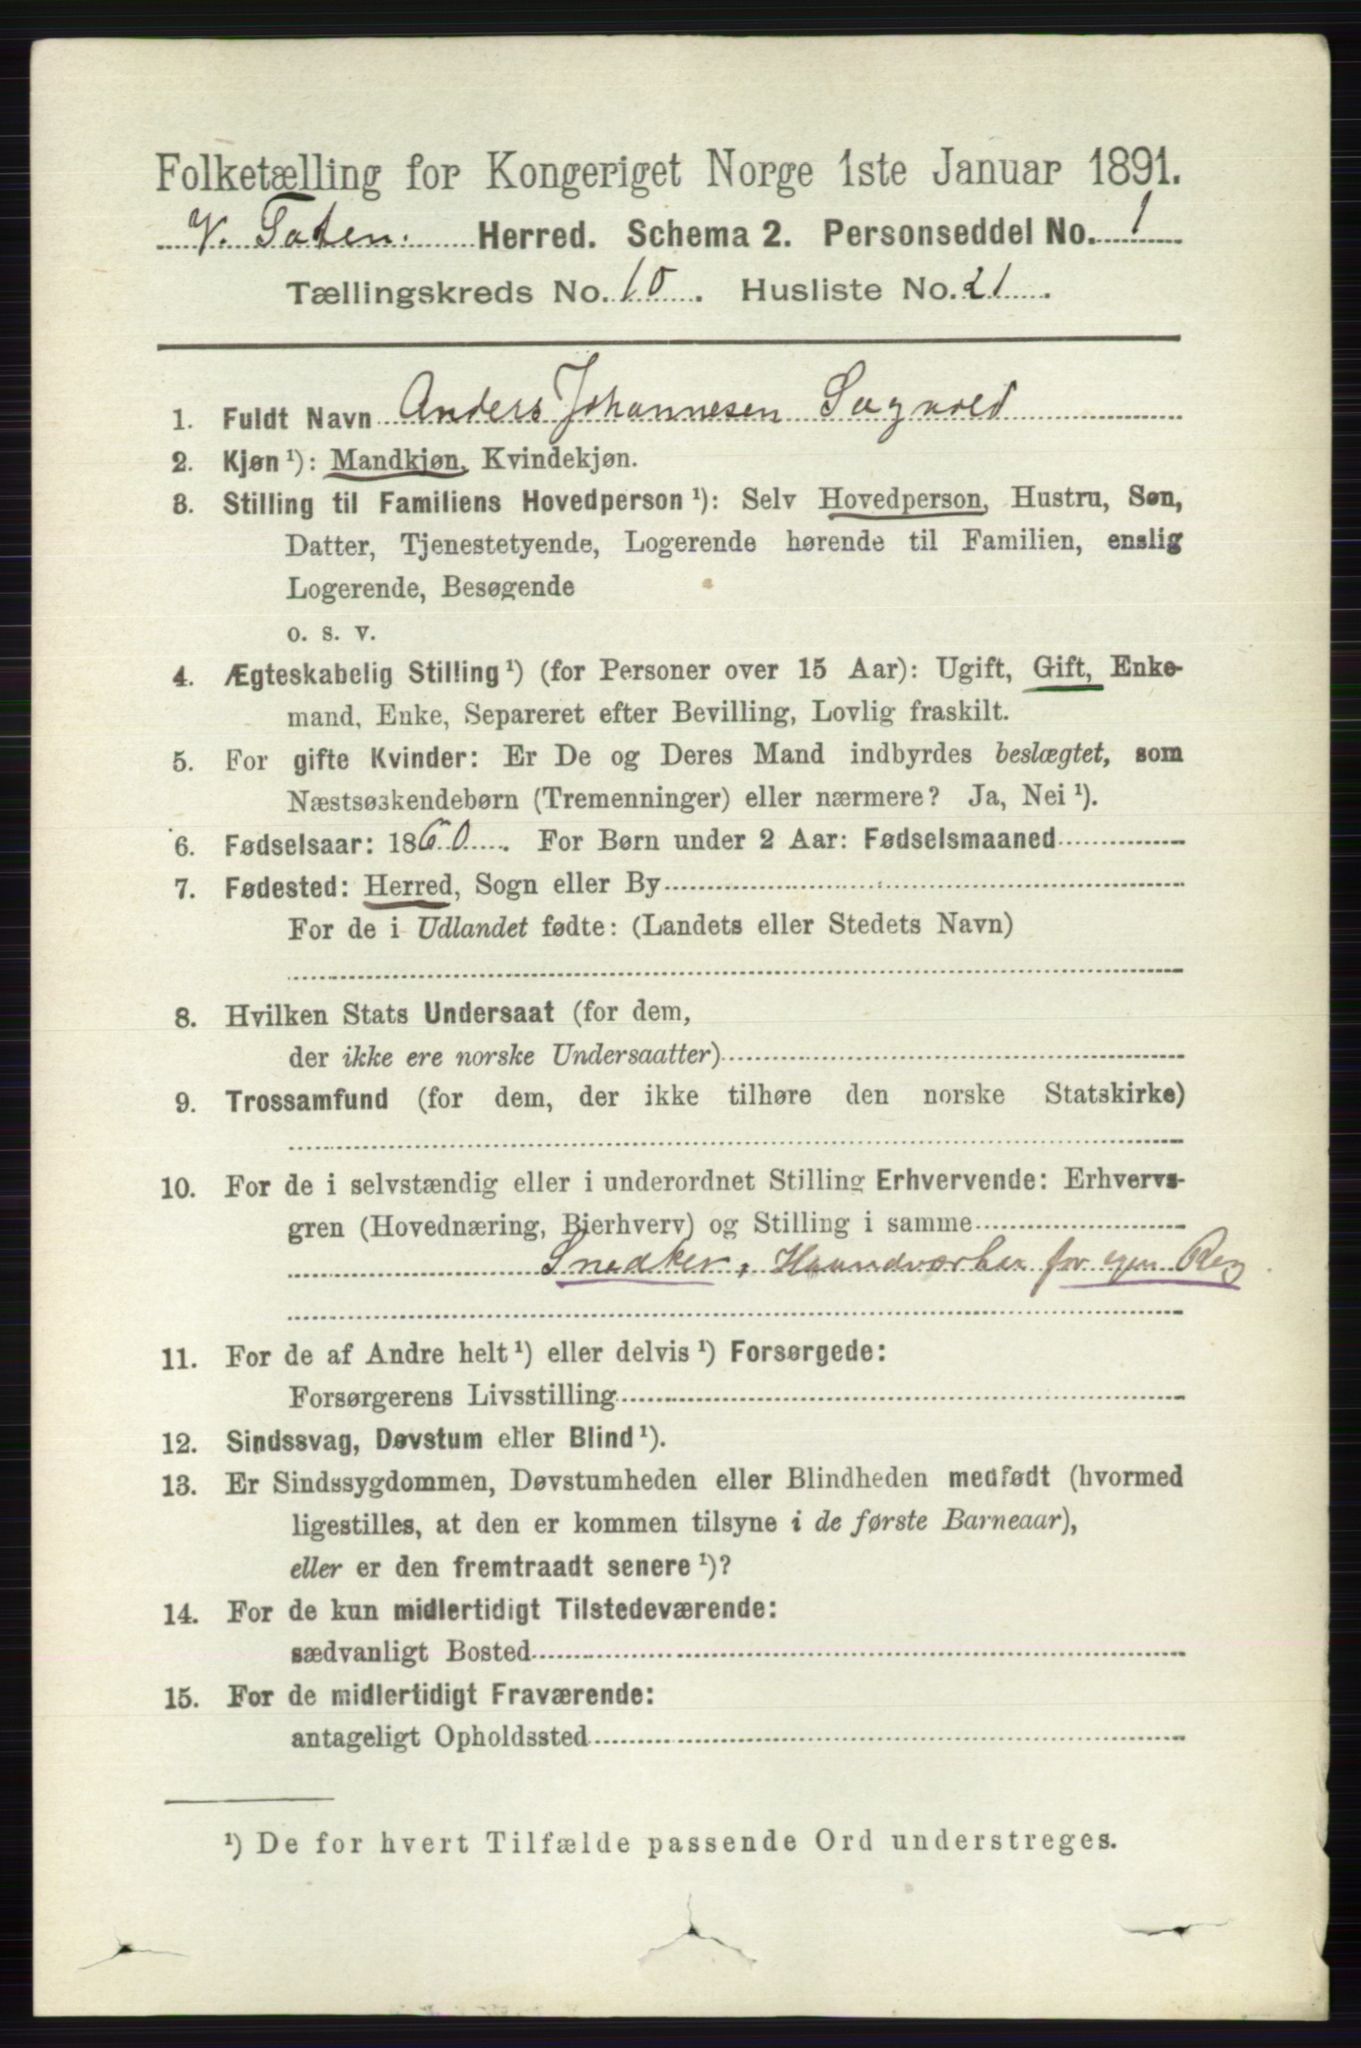 Folketælling for Kongeriget Norge 1ste Januar 1891.
V. Toten. Herred. Schema 2. Personseddel No. 1
Tællingskreds No. 10. Husliste No. 21.
1. Fuldt Navn Anders Johannesen Sagvold
2. Kjøn¹): Mandkjøn, Kvindekjøn.
3. Stilling til Familiens Hovedperson¹): Selv Hovedperson, Hustru, Søn,
Datter, Tjenestetyende, Logerende hørende til Familien, enslig
Logerende, Besøgende
o. s. v.
4. Ægteskabelig Stilling¹) (for Personer over 15 Aar): Ugift, Gift, Enke-
mand, Enke, Separeret efter Bevilling, Lovlig fraskilt.
5. For gifte Kvinder: Er De og Deres Mand indbyrdes beslægtet, som
Næstsøskendebørn (Tremenninger) eller nærmere? Ja, Nei¹).
6. Fødselsaar: 1860. For Børn under 2 Aar: Fødselsmaaned
7. Fødested: Herred, Sogn eller By
For de i Udlandet fødte: (Landets eller Stedets Navn)
8. Hvilken Stats Undersaat (for dem,
der ikke ere norske Undersaatter)
9. Trossamfund (for dem, der ikke tilhøre den norske Statskirke)
10. For de i selvstændig eller i underordnet Stilling Erhvervende: Erhvervs-
gren (Hovednæring, Bierhverv) og Stilling i samme
Snedker, Haandværker for egen Reg
11. For de af Andre helt¹) eller delvis¹) Forsørgede:
Forsørgerens Livsstilling
12. Sindssvag, Døvstum eller Blind¹).
13. Er Sindssygdommen, Døvstumheden eller Blindheden medfødt (hvormed
ligestilles, at den er kommen tilsyne i de første Barneaar),
eller er den fremtraadt senere¹)?
14. For de kun midlertidigt Tilstedeværende:
sædvanligt Bosted
15. For de midlertidigt Fraværende:
antageligt Opholdssted
¹) De for hvert Tilfælde passende Ord understreges.